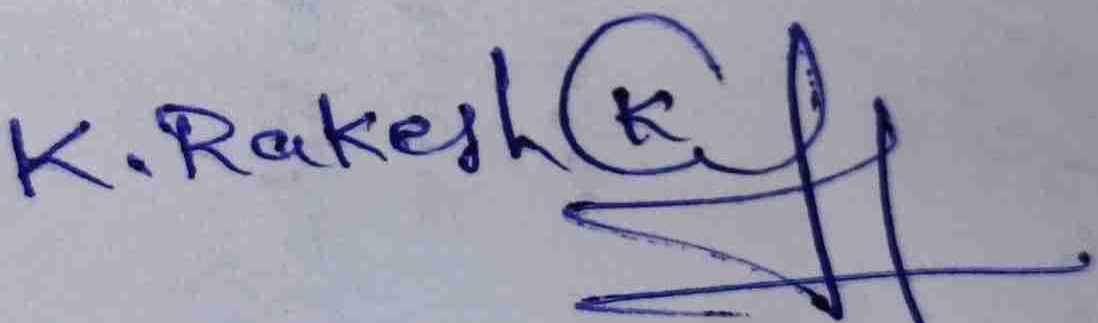 K. Rakesh K